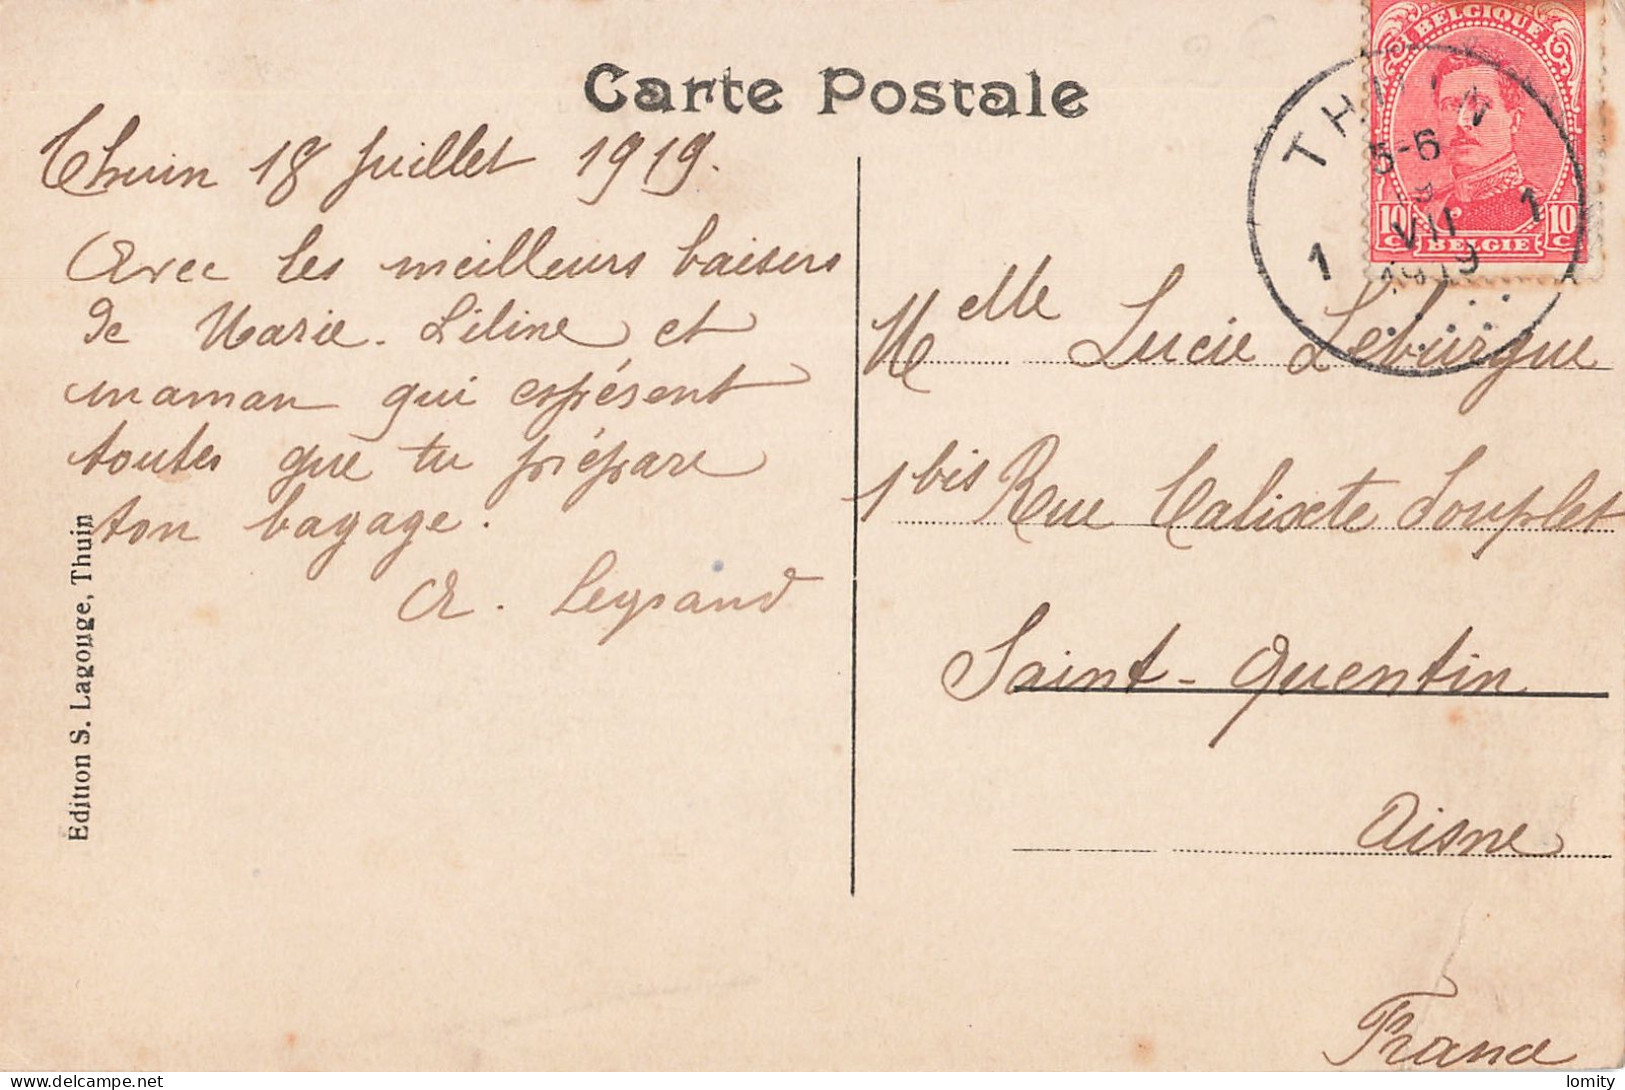 Carte Postale
Thuin 18 Juillet 1919.
Avec les meilleurs baisers
de Marie. Liline et
maman qui espésent
toutes que tu prépare
ton bagage.
A. Legrand
Edition S. Lagouge, Thuin
BELGIQUE
10 C 10 C
BELGIE
THUIN
5-6
VII
1 1
1919
Melle Lucie Leburgue
1 bis Rue Calixte Souplet
Saint-Quentin
Aisne
France
delcampe.net
lomity